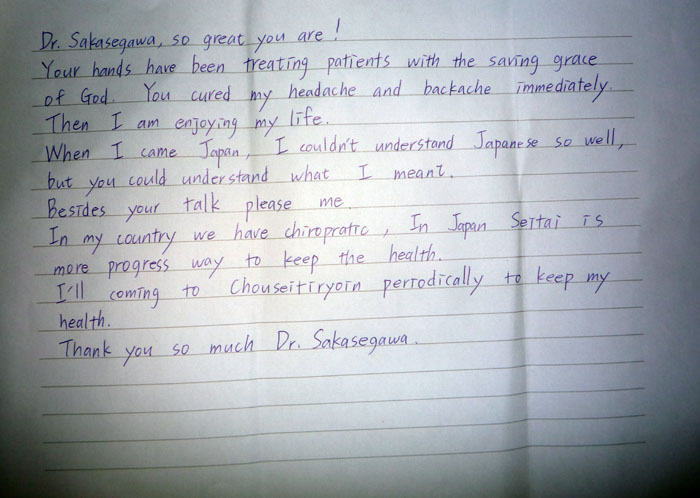 Dr. Sakasegawa, so great you are!
Your hands have been treating patients with the saving grace
of God. You cured my headache and backache immediately.
Then I am enjoying my life.
When I came Japan, I couldn't understand Japanese so well,
but you could understand what I meant.
Besides your talk please me.
In my country we have chiropratic, In Japan Seitai is
more progress way to keep the health.
I'll coming to Chouseitiryoin perrodically to keep my
health.
Thank you so much Dr. Sakasegawa.